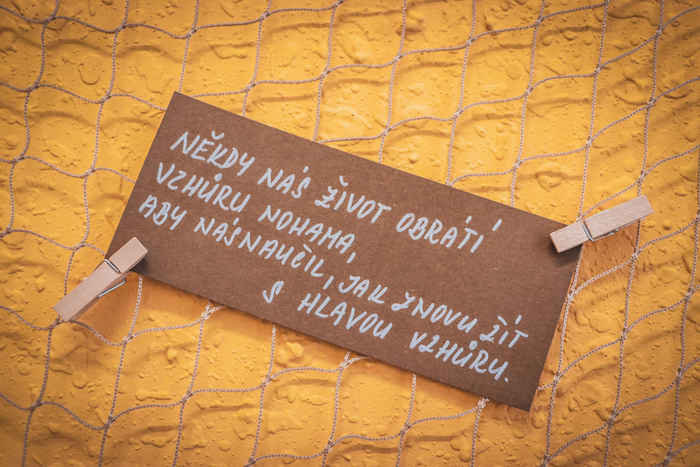 NĚKDY NÁS ŽIVOT OBRÁTÍ
VZHŮRU NOHAMA,
ABY NÁS NAUČIL, JAK ZNOVU ŽÍT
S HLAVOU VZHŮRU.